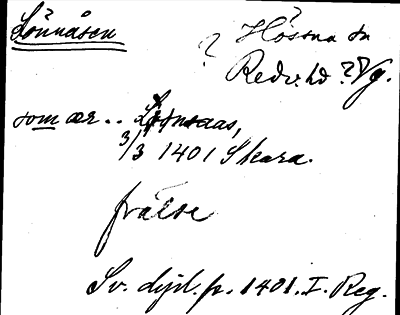 Lönnåsen
? Hössna sn
Redv. hd ? Vg.
som ær.. Lønsaas,
3/3 1401 Skara.
frälse
Sv. dipl. fr. 1401. I. Reg.